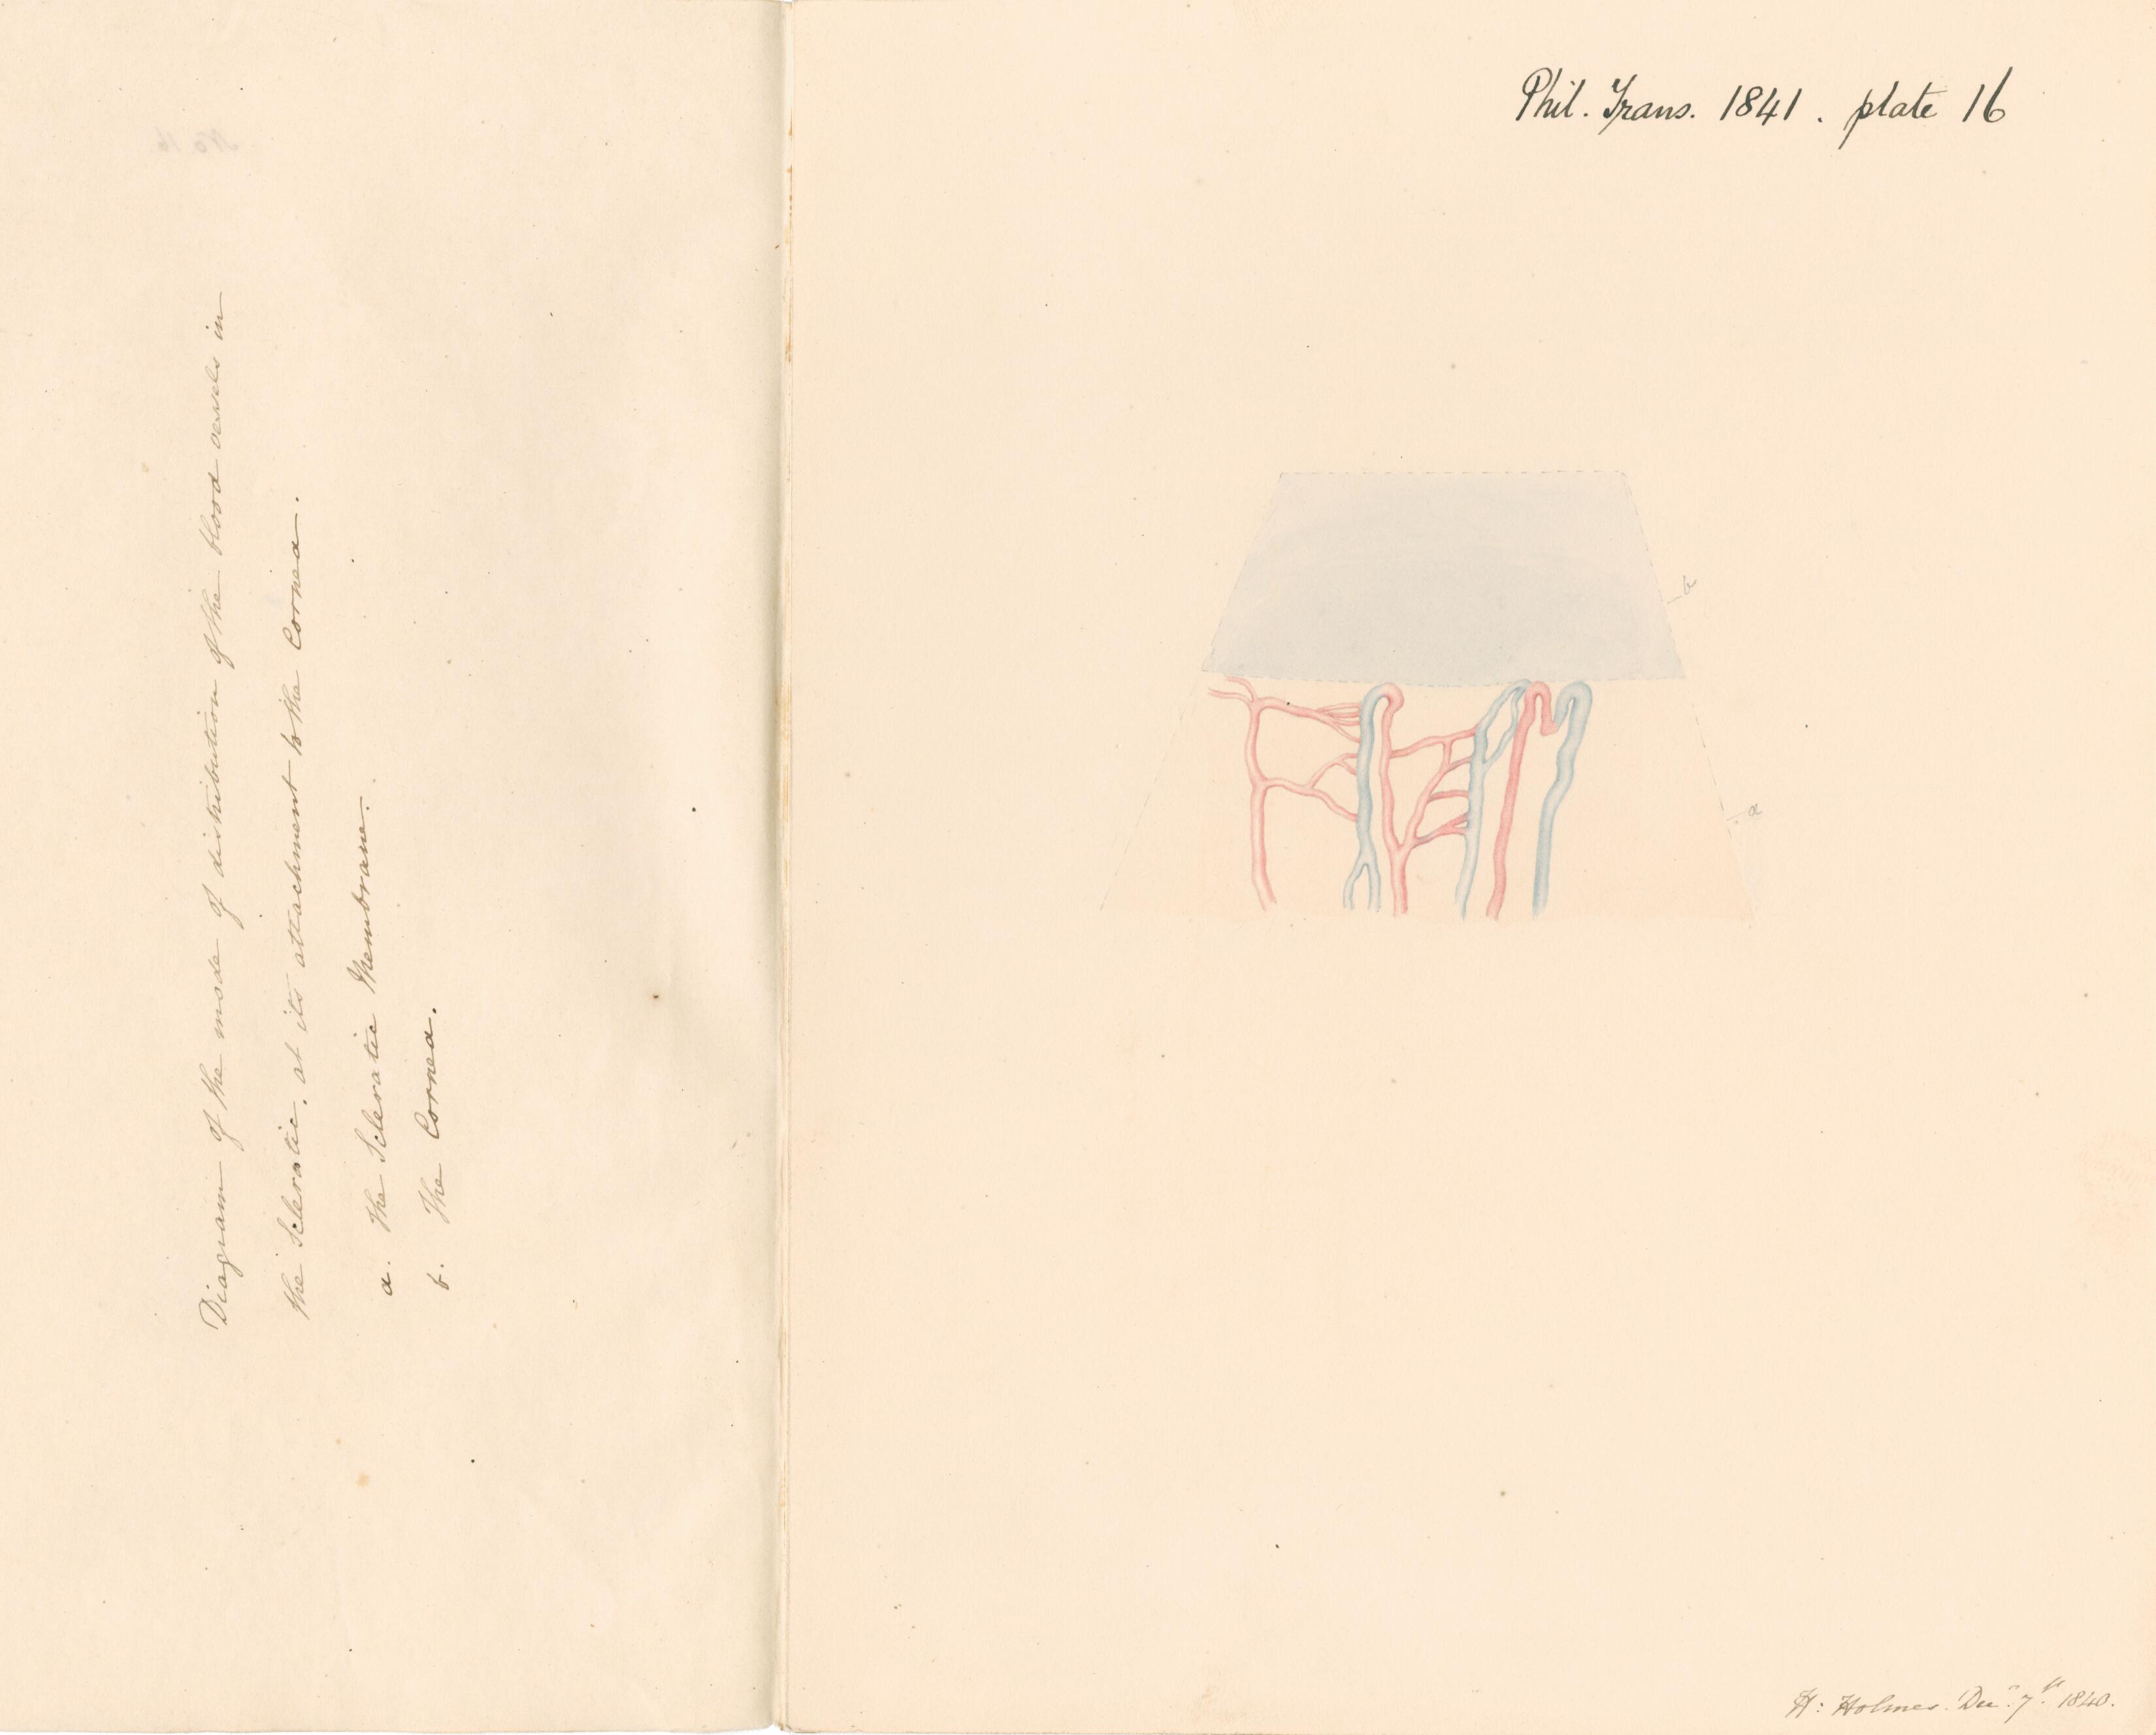 Diagram of the mode of distribution of the blood vessels in
the Sclerotic, at its attachment to the Cornea.
a. The Sclerotic Membrane.
b. The Cornea.
Phil. Trans. 1841. plate 16
b
a
H: Holmes. Decr. 7th. 1840.